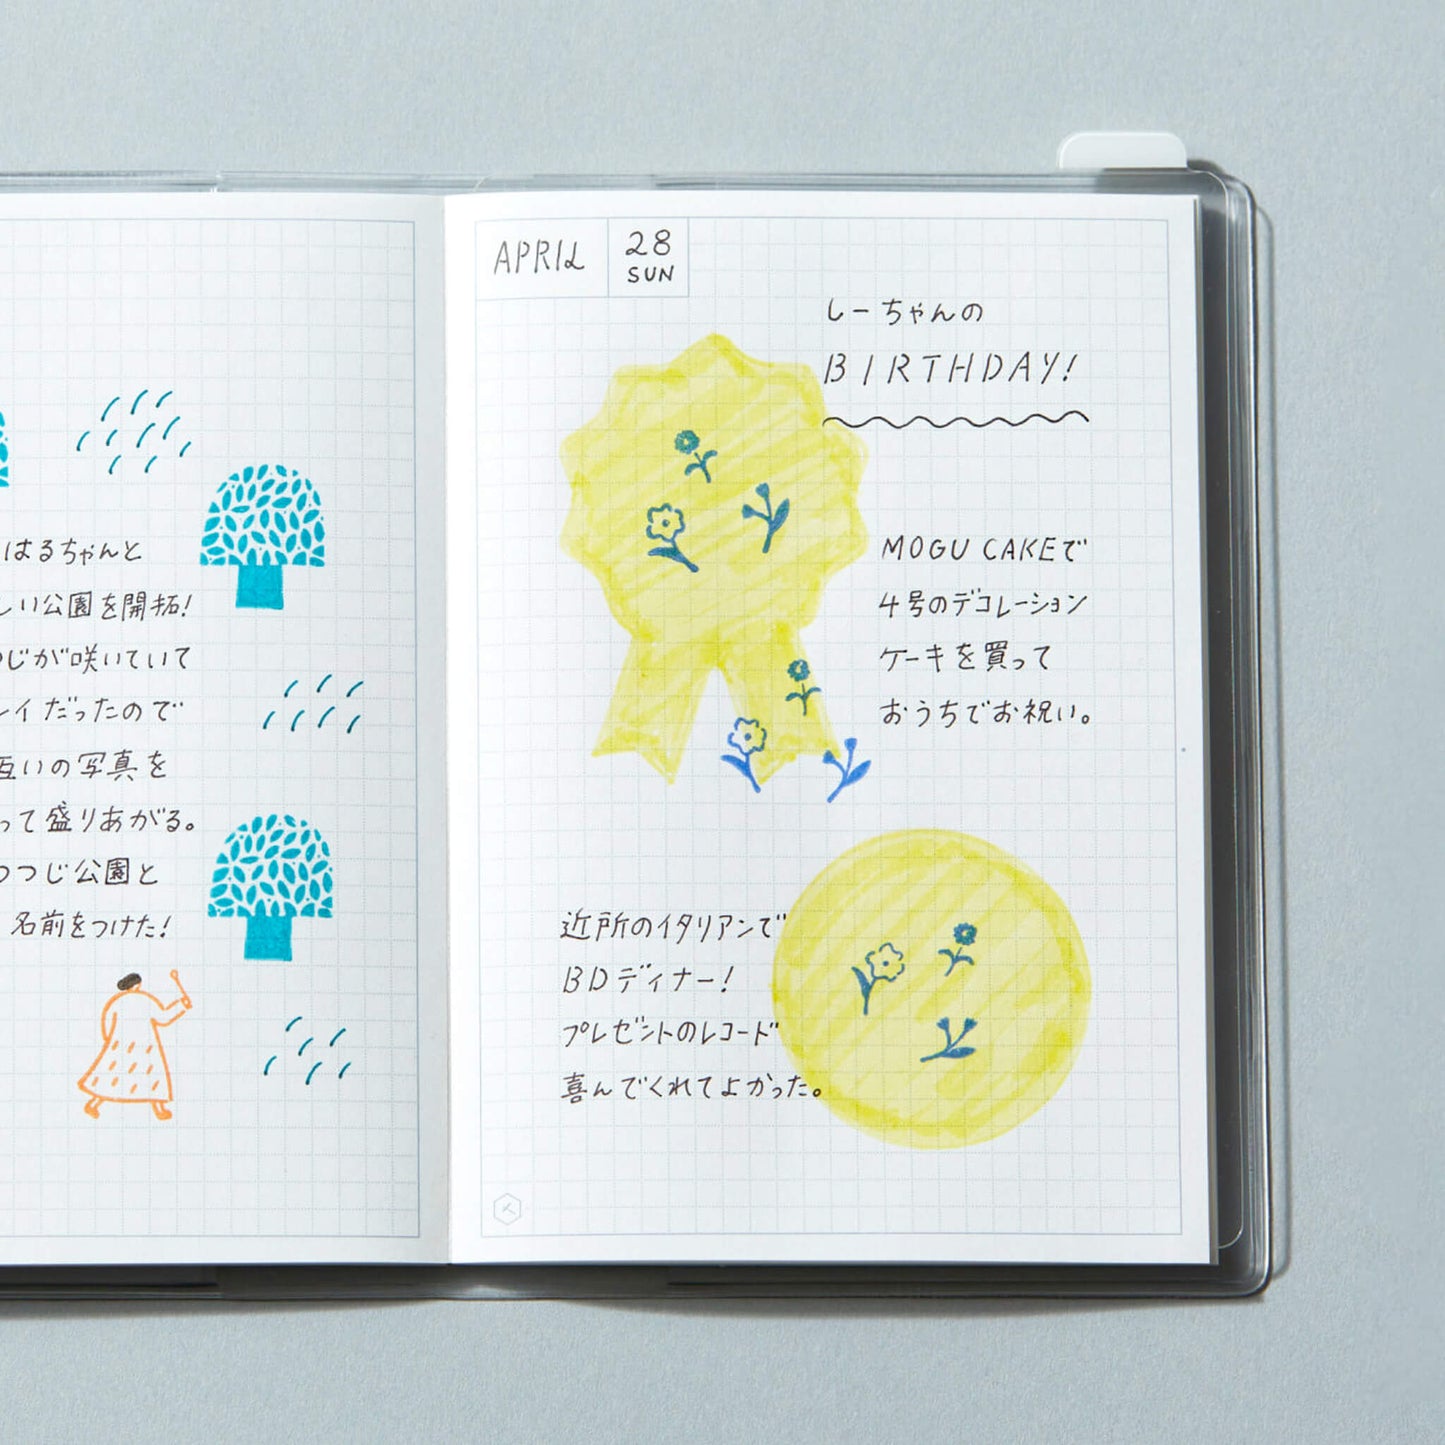 はるちゃんと
しい公園を開拓!
つじが咲いていて
レイだったので
互いの写真を
って盛りあがる。
つつじ公園と
名前をつけた!
APRIL
28
SUN
しーちゃんの
BIRTHDAY!
MOGU CAKEで
4号のデコレーション
ケーキを買って
おうちでお祝い。
近所のイタリアンで
BDディナー!
プレゼントのレコード
喜んでくれてよかった。